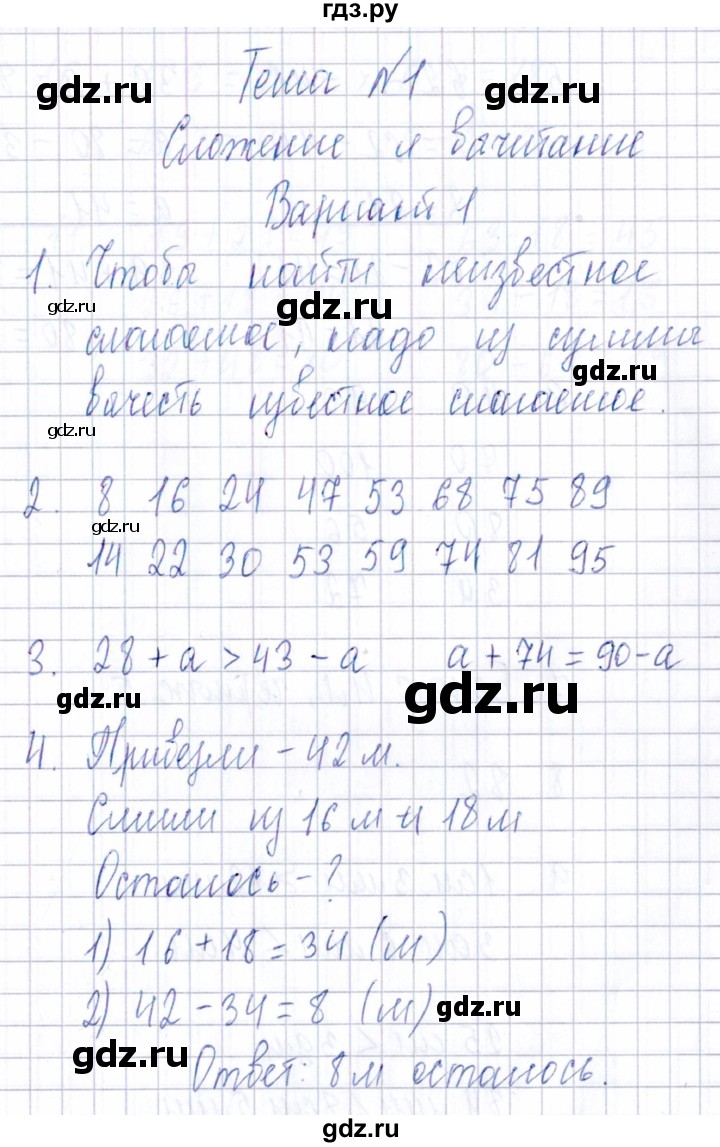 гдз.ру
Тема №1
Сложение и вычитание
Вариант 1
1. Чтобы найти неизвестное
слагаемое, надо из суммы
вычесть известное слагаемое.
2. 8 16 24 47 53 68 75 89
14 22 30 53 59 74 81 95
3. 28 + а > 43 - а а + 74 = 90 - а
4. Привезли - 42 м.
Сшили из 16 м и 18 м
Осталось - ?
1) 16 + 18 = 34 (м)
2) 42 - 34 = 8 (м)
Ответ: 8 м осталось.
gdz.ru
gdz.ru
gdz.ru
gdz.ru
gdz.ru
gdz.ru
gdz.ru
gdz.ru
gdz.ru
gdz.ru
gdz.ru
gdz.ru